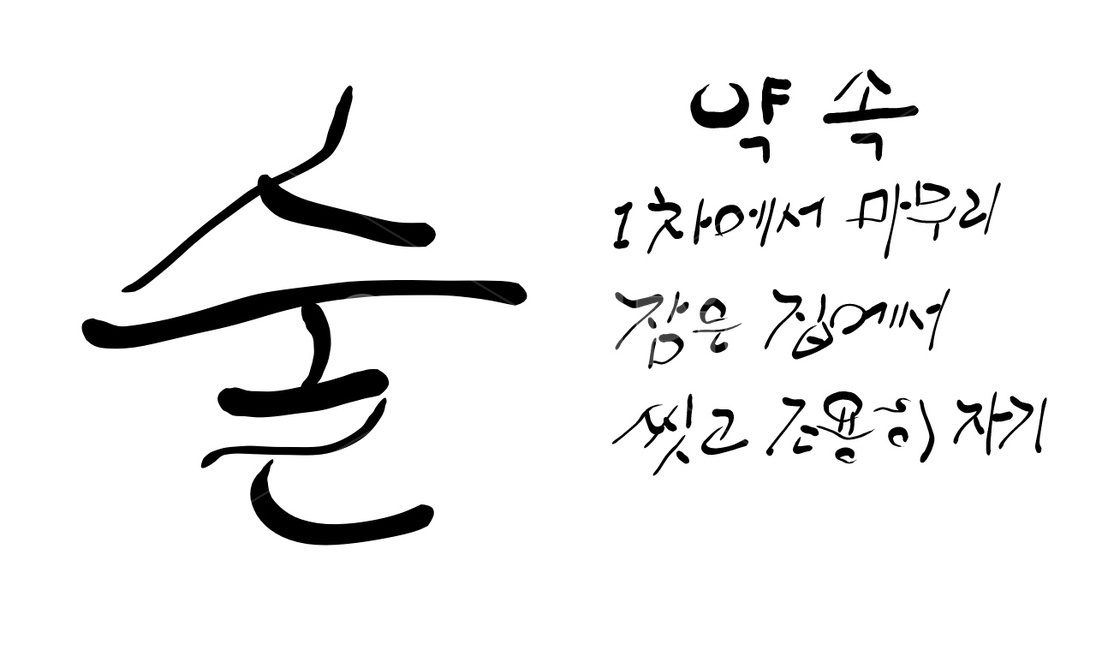 술
약속
1차에서 마무리
잠은 집에서
씻고 조용히 자기